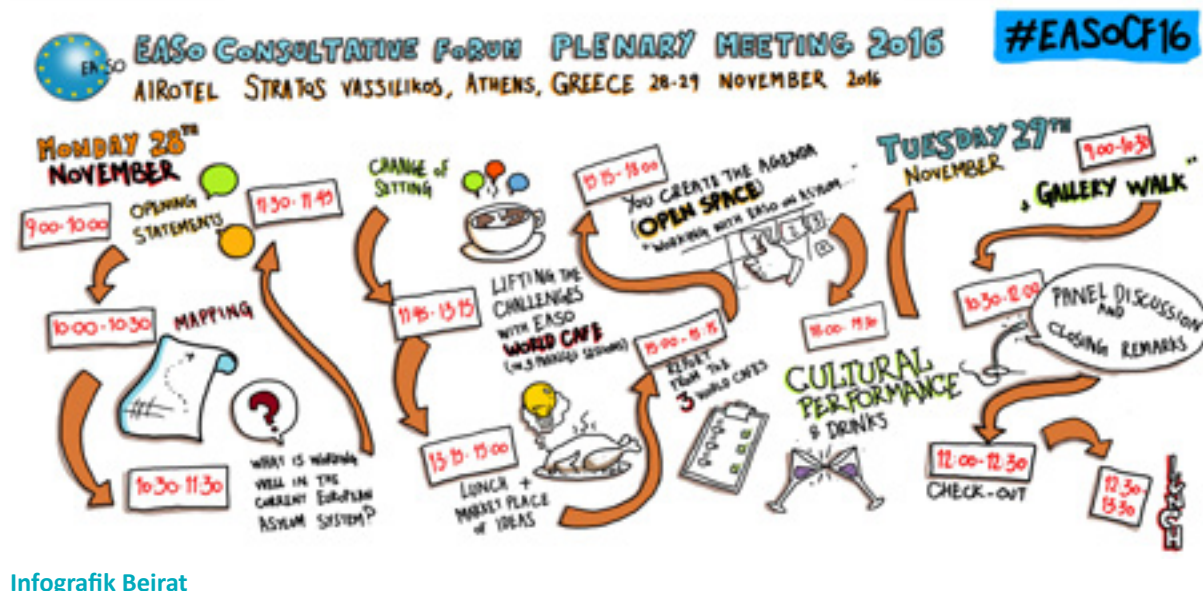 EASO
EASO CONSULTATIVE FORUM PLENARY MEETING 2016
#EASOCF16
AIROTEL STRATOS VASSILIKOS, ATHENS, GREECE 28-29 NOVEMBER 2016
MONDAY 28TH
NOVEMBER
9:00-10:00
OPENING
STATEMENTS
10:00-10:30
MAPPING
10:30-11:30
WHAT IS WORKING
WELL IN THE
CURRENT EUROPEAN
ASYLUM SYSTEM?
11:30-11:45
CHANGE OF
SETTING
11:45-13:15
LIFTING THE
CHALLENGES
WITH EASO
WORLD CAFE
(IN 3 PARALLEL SESSIONS)
13:15-15:00
LUNCH +
MARKET PLACE
OF IDEAS
15:00-15:15
REPORT
FROM THE
3 WORLD CAFES
15:15-18:00
YOU CREATE THE AGENDA
(OPEN SPACE)
"WORKING WITH EASO ON ASYLUM..."
CULTURAL
PERFORMANCE
& DRINKS
TUESDAY 29TH
NOVEMBER
9:00-10:30
GALLERY WALK
10:30-12:00
PANEL DISCUSSION
AND
CLOSING REMARKS
12:00-12:30
CHECK-OUT
12:30-
13:30
LUNCH
Infografik Beirat